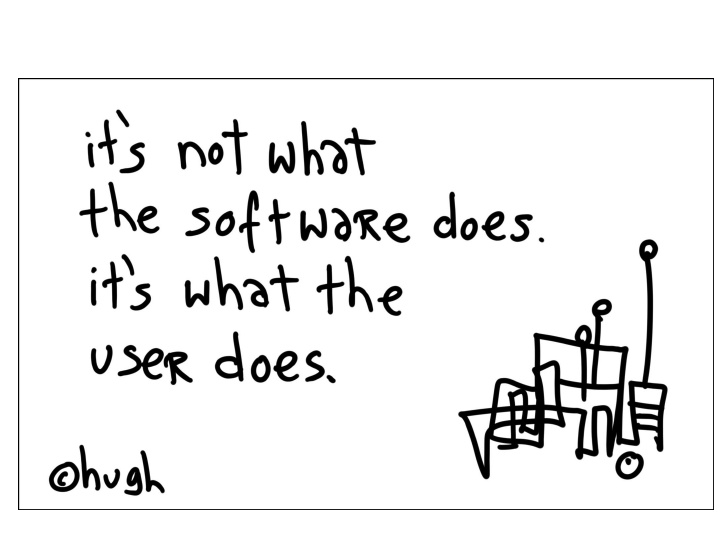 it's not what
the software does.
it's what the
user does.
©hugh